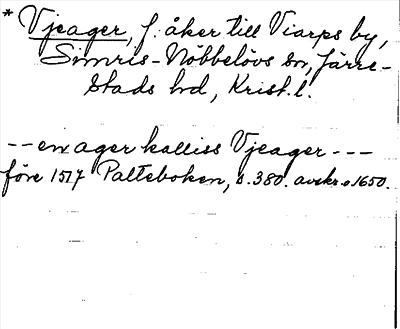 * Vjeager, f. åker till Viarps by,
Simris-Nöbbelövs sn, Järre-
stads hd, Krist. l.
-- en ager kalliss Vjeager ---
före 1517 Palteboken, s. 380. avskr. o 1650.